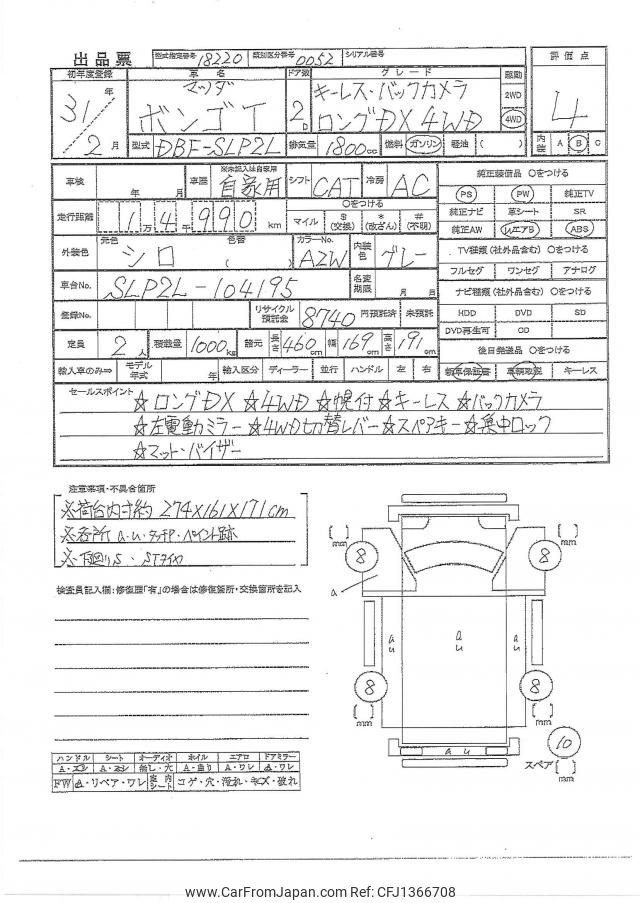 出品票 型式指定番号 18220 類別区分番号 0052 シリアル番号
初年度登録 車名 ドア数 グレード 駆動 評価点
31年 2月 マツダ ボンゴT 2D キーレス・バックカメラ 2WD 4
ロングDX 4WD 4WD
型式 DBF-SLP2L 排気量 1800cc 燃料 ガソリン・軽油( ) 内装 A B C
車検 年 月 車歴 ※未記入は自家用 自家用 シフト CAT 冷房 AC 純正装備品 ○をつける
PS PW 純正TV
走行距離 1万4千990km ○をつける マイル $(交換) *(改ざん) #(不明) 純正ナビ 革シート SR
純正AW μエアB ABS
外装色 元色 シロ 色替 ( ) カラーNo. A2W 内装色 グレー TV種類(社外品含む) ○をつける
フルセグ ワンセグ アナログ
車台No. SLP2L-104195 名変期限 月 日 ナビ種類(社外品含む) ○をつける
登録No. リサイクル預託金 8740 円預託済 未預託 HDD DVD SD
DVD再生可 CD
定員 2人 積載量 1000kg 諸元 長さ460cm 幅169cm 高さ191cm 後日発送品 ○をつける
輸入車のみ⇒ モデル年式 年 輸入区分 ディーラー 並行 ハンドル 左 右 新車保証書 車輌取説 キーレス
セールスポイント
☆ロングDX ☆4WD ☆幌付 ☆キーレス ☆バックカメラ
☆左電動ミラー ☆4WD切替レバー ☆スペアキー ☆集中ロック
☆マット・バイザー
注意事項・不具合箇所
※荷台内寸約 274×161×171cm
※各所 a.u.タッチP・ペイント跡
※下回りS・STタイヤ
検査員記入欄:修復歴「有」の場合は修復箇所・交換箇所を記入
[ ]mm 8 8 [ ]mm
a
au au au
8 8
[ ]mm [ ]mm
au 10
スペア[ ]mm
ハンドル シート オーディオ ホイル エアロ ドアミラー
A・スレ A・スレ 無し・穴 A・曲り A・ワレ A・ワレ
FW A・リペア・ワレ 室内シート コゲ・穴・汚れ・キズ・破れ
www.CarFromJapan.com Ref: CFJ1366708